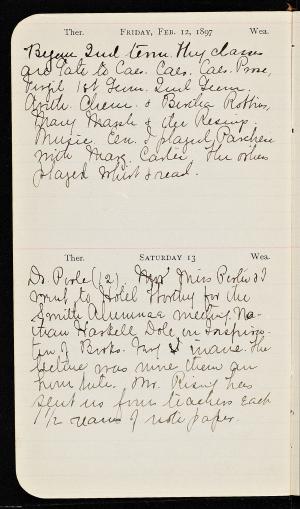 Ther. FRIDAY, FEB. 12, 1897 Wea.
Began 2nd term. My classes
are Late to Caes. Caes. Caes. Prose,
Virgil 1st Germ. 2nd Germ.
Arith. Chem. & Bertha Robbins,
Mary Marsh & the Risings.
Music. Eve. I played Parchesi
with Marg. Carter, the others
played whist & read.
Ther. SATURDAY 13 Wea.
Dr. (12) Miss Perlie & I
went to Hotel Worthy for the
Smith Alumnae meeting. Na-
than Haskell Dole on Inspira-
tion of Books. Very inane. The
lecture was more than an
hour late. Mr. Rising has
sent us four teachers each
1/2 ream of note paper.